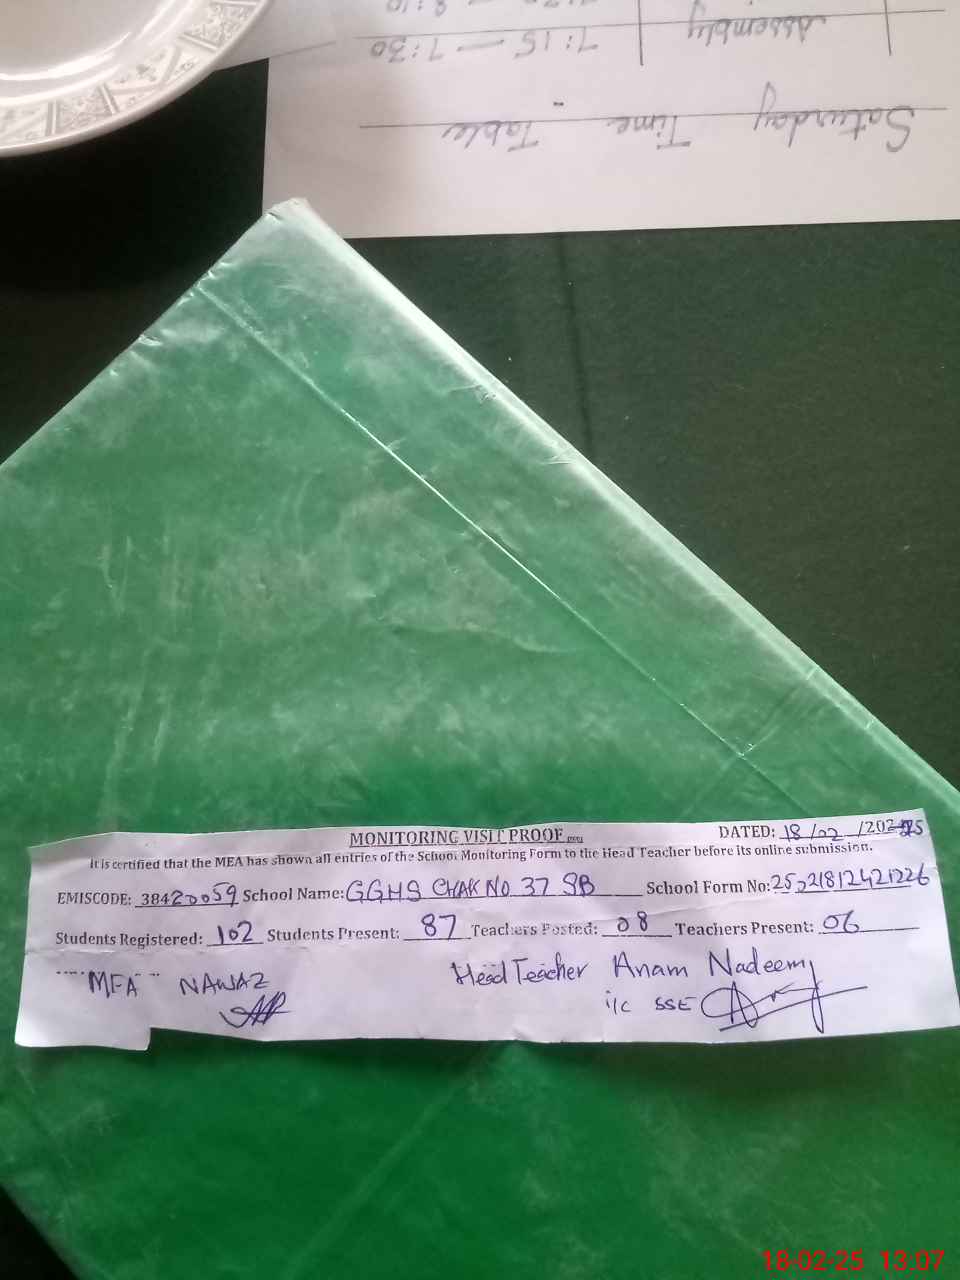 Saturday Time Table
Assembly | 7:15 — 7:30
MONITORING VISIT PROOF
DATED: 18/02/2025
It is certified that the MEA has shown all entries of the School Monitoring Form to the Head Teacher before its online submission.
EMISCODE: 38420059 School Name: GGHS CHAK NO 37 SB School Form No:
Students Registered: 102 Students Present: 87 Teachers Posted: 08 Teachers Present: 06
MEA NAWAZ Head Teacher Anam Nadeem
i/c SSE
18-02-25 13:07